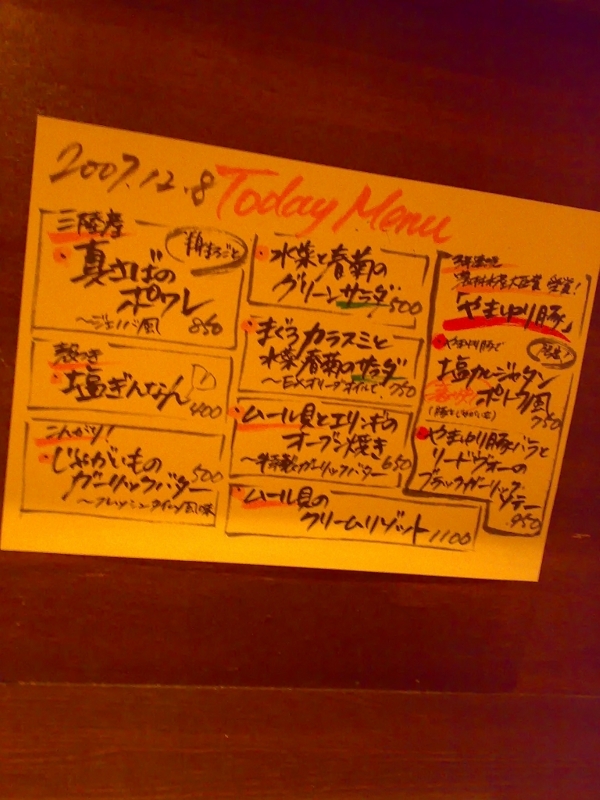 2007.12.8 Today Menu
三陸産
真さばの
ポワレ
〜ジェノバ風 850
殻つき
塩ぎんなん
400
こんがり!
じゃがいもの 500
ガーリックバター
〜フレッシュタイム風味
水菜と春菊の
グリーンサラダ 500
まぐろカラスミと
水菜春菊のサラダ
〜EXオリーブオイルで 750
ムール貝とエリンギの
オーブン焼き
ガーリックバター 650
ムール貝の
クリームリゾット 1100
農林水産大臣賞 受賞!
「やまゆり豚」
やまゆり豚で
塩カルジャタン
ポトフ風
750
やまゆり豚バラと
リードヴォーの
ブラックガーリック
ソテー
950